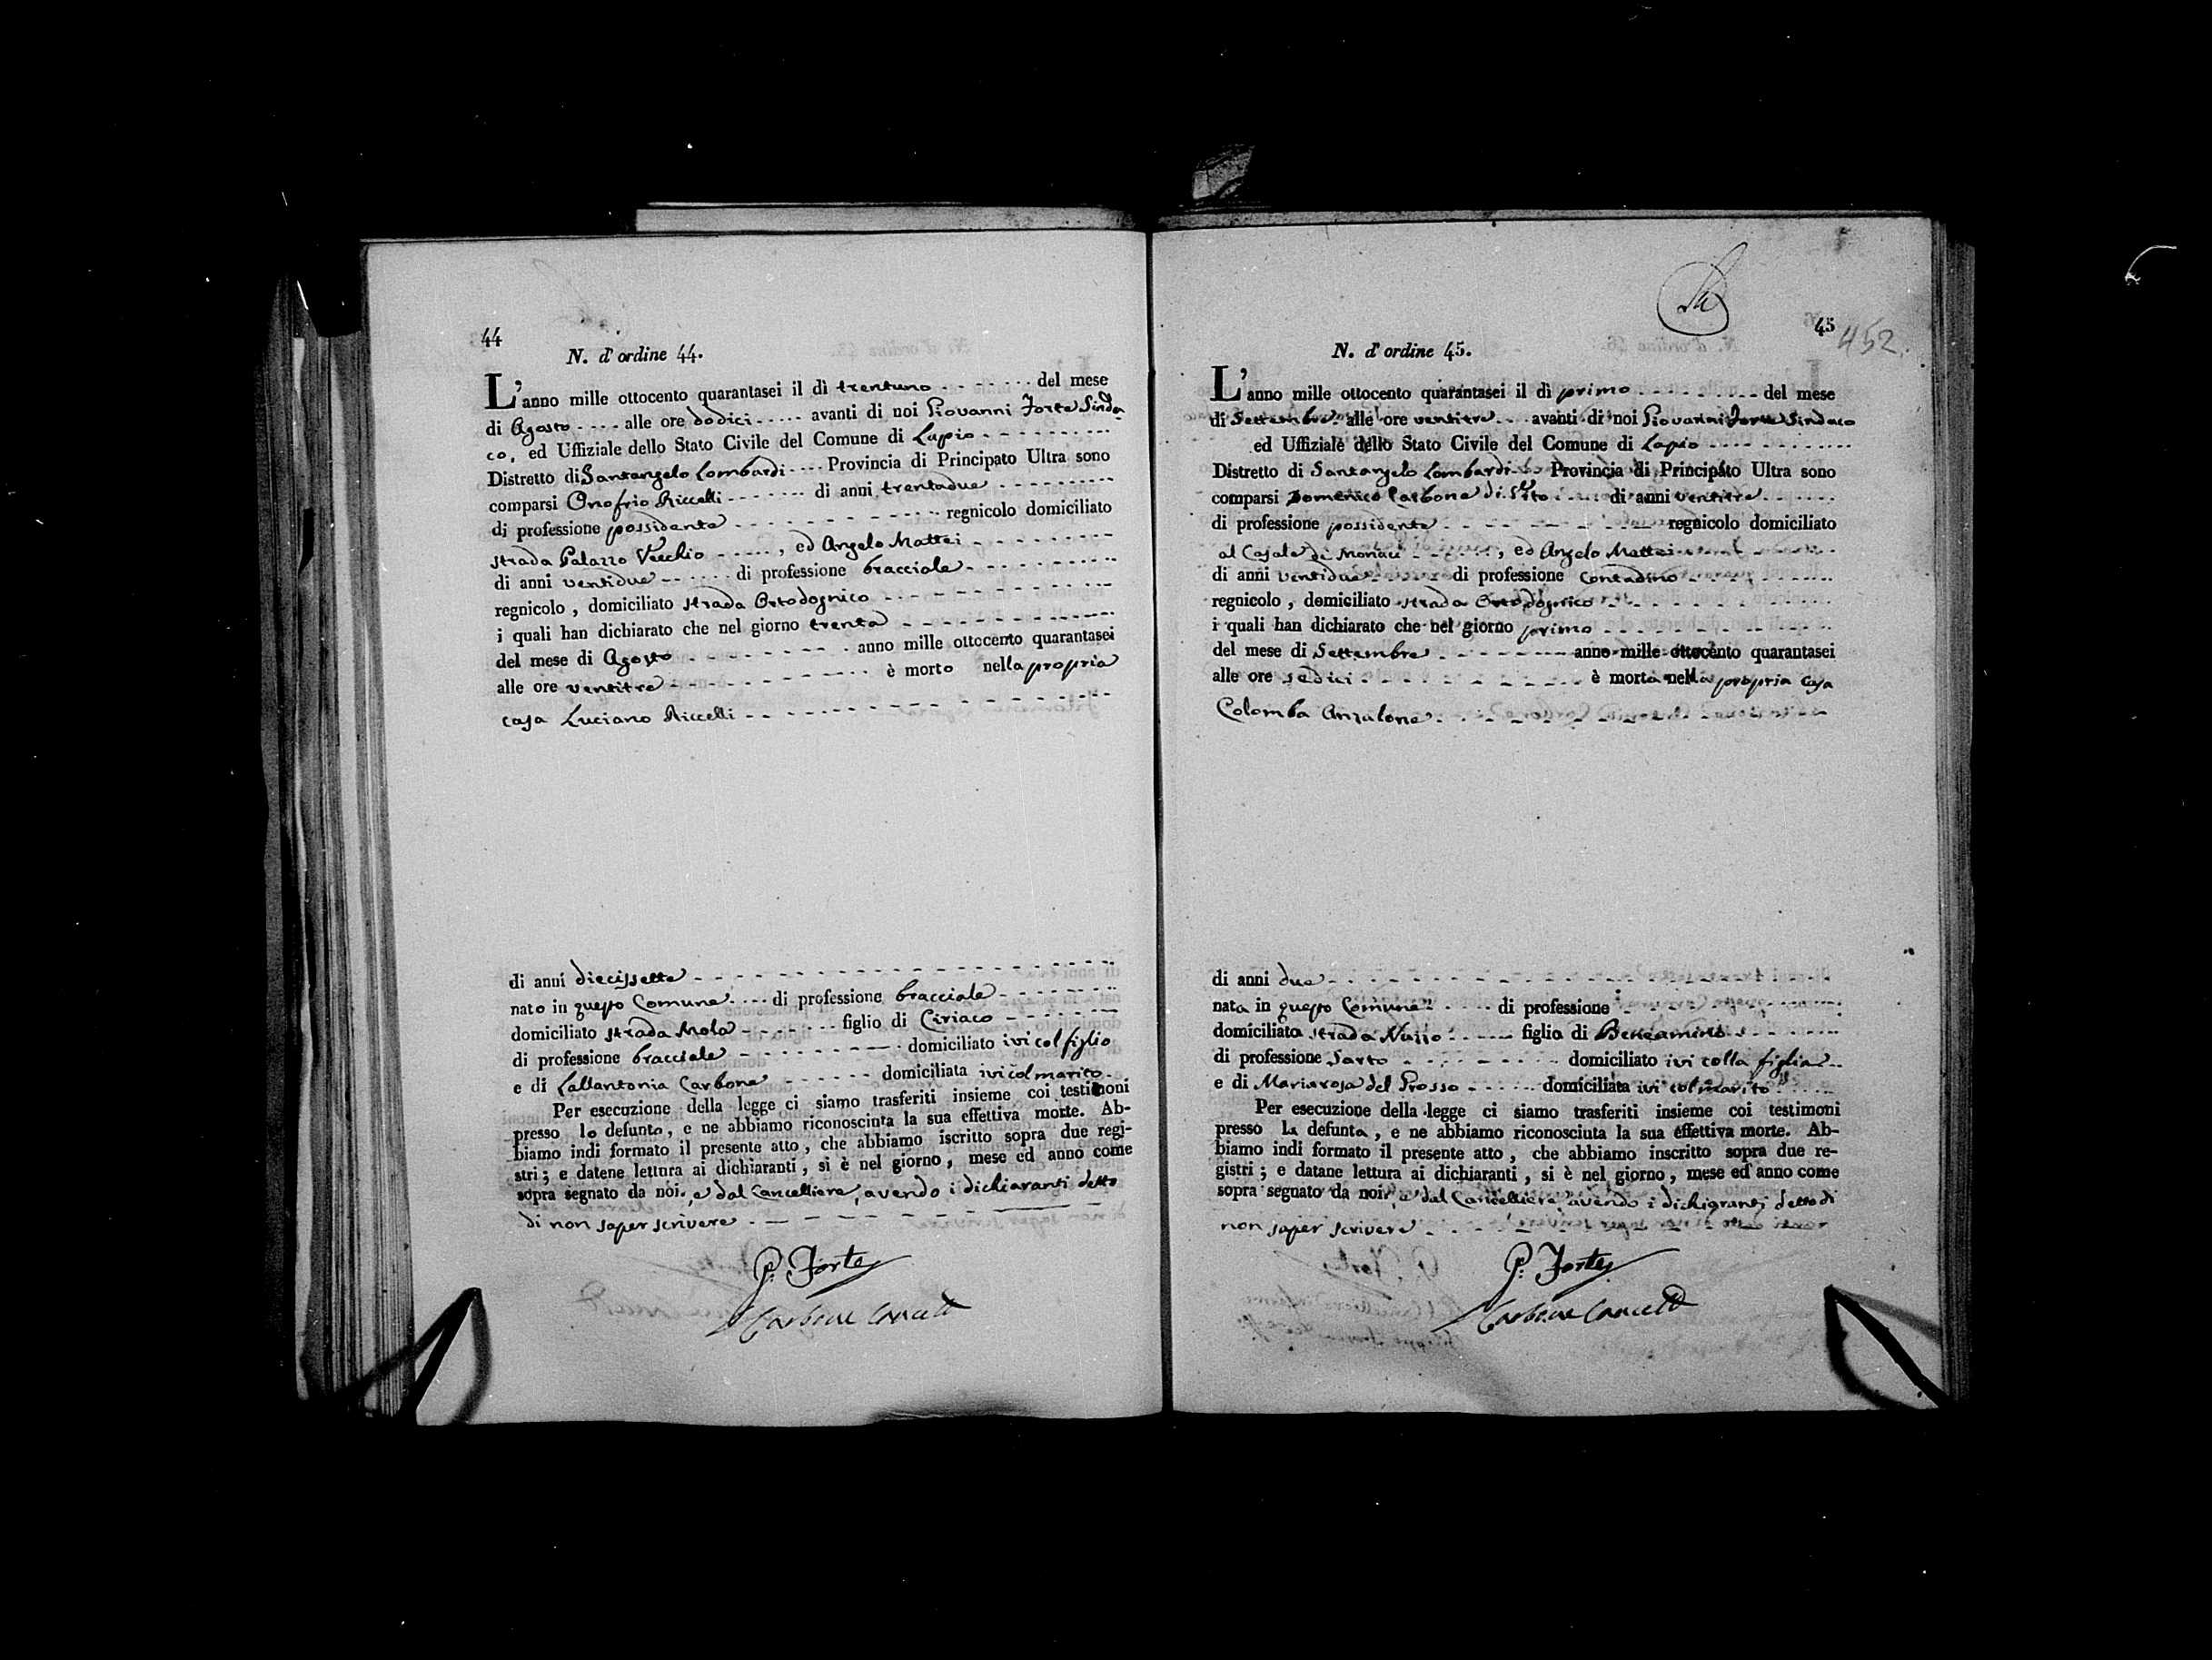 44
N. d'ordine 44.
L'anno mille ottocento quarantasei il dì trentuno del mese
di Agosto alle ore dodici avanti di noi Giovanni Forte Sinda
co, ed Uffiziale dello Stato Civile del Comune di Lapio
Distretto di Santangelo Lombardi Provincia di Principato Ultra sono
comparsi Onofrio Riccelli di anni trentadue
di professione possidente regnicolo domiciliato
strada Palazzo Vecchio , ed Angelo Mattei
di anni ventidue di professione bracciale
regnicolo , domiciliato strada Ortodognico
i quali han dichiarato che nel giorno trenta
del mese di Agosto anno mille ottocento quarantasei
alle ore ventitre è morto nella propria
casa Luciano Riccelli
di anni diecissette
nato in questo Comune di professione bracciale
domiciliato strada Mola figlio di Ciriaco
di professione bracciale domiciliato ivi col figlio
e di Lallantonia Carbone domiciliata ivi col marito
Per esecuzione della legge ci siamo trasferiti insieme coi testimoni
presso lo defunto, e ne abbiamo riconosciuta la sua effettiva morte. Ab-
biamo indi formato il presente atto , che abbiamo iscritto sopra due regi-
stri ; e datene lettura ai dichiaranti , si è nel giorno , mese ed anno come
sopra segnato da noi, e dal Cancelliere, avendo i dichiaranti detto
di non saper scrivere
G. Forte
Carbone Cancell
45
452.
N. d'ordine 45.
L'anno mille ottocento quarantasei il dì primo del mese
di Settembre alle ore ventitre avanti di noi Giovanni Forte Sindaco
ed Uffiziale dello Stato Civile del Comune di Lapio
Distretto di Santangelo Lombardi Provincia di Principato Ultra sono
comparsi Domenico Carbone di Vito di anni ventitre
di professione possidente regnicolo domiciliato
al Casale di Monaci , ed Angelo Mattei
di anni ventidue di professione Contadino
regnicolo , domiciliato strada Ortodognico
i quali han dichiarato che nel giorno primo
del mese di Settembre anno mille ottocento quarantasei
alle ore sedici è morta nella propria casa
Colomba Anzalone
di anni due
nata in questo Comune di professione
domiciliata strada Nuzzo figlia di Beneamino
di professione Sarto domiciliato ivi colla figlia
e di Mariarosa del Grosso domiciliata ivi col marito
Per esecuzione della legge ci siamo trasferiti insieme coi testimoni
presso la defunta , e ne abbiamo riconosciuta la sua effettiva morte. Ab-
biamo indi formato il presente atto , che abbiamo inscritto sopra due re-
gistri ; e datane lettura ai dichiaranti , si è nel giorno , mese ed anno come
sopra segnato da noi, e dal Cancelliere avendo i dichiaranti detto di
non saper scrivere
G. Forte
Carbone Cancell